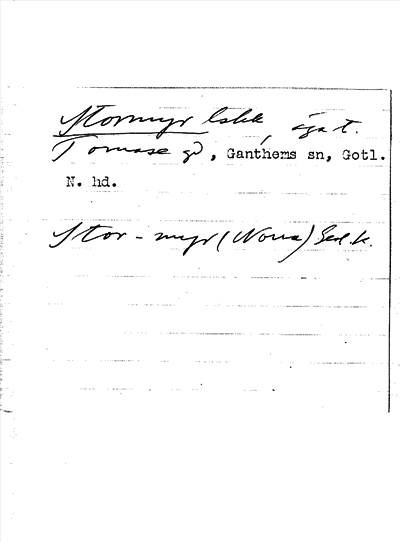 Stormyr lslek, äga t.
Tomase gd, Ganthems sn, Gotl.
N. hd.
Stor-myr (Norra) Ged. k.